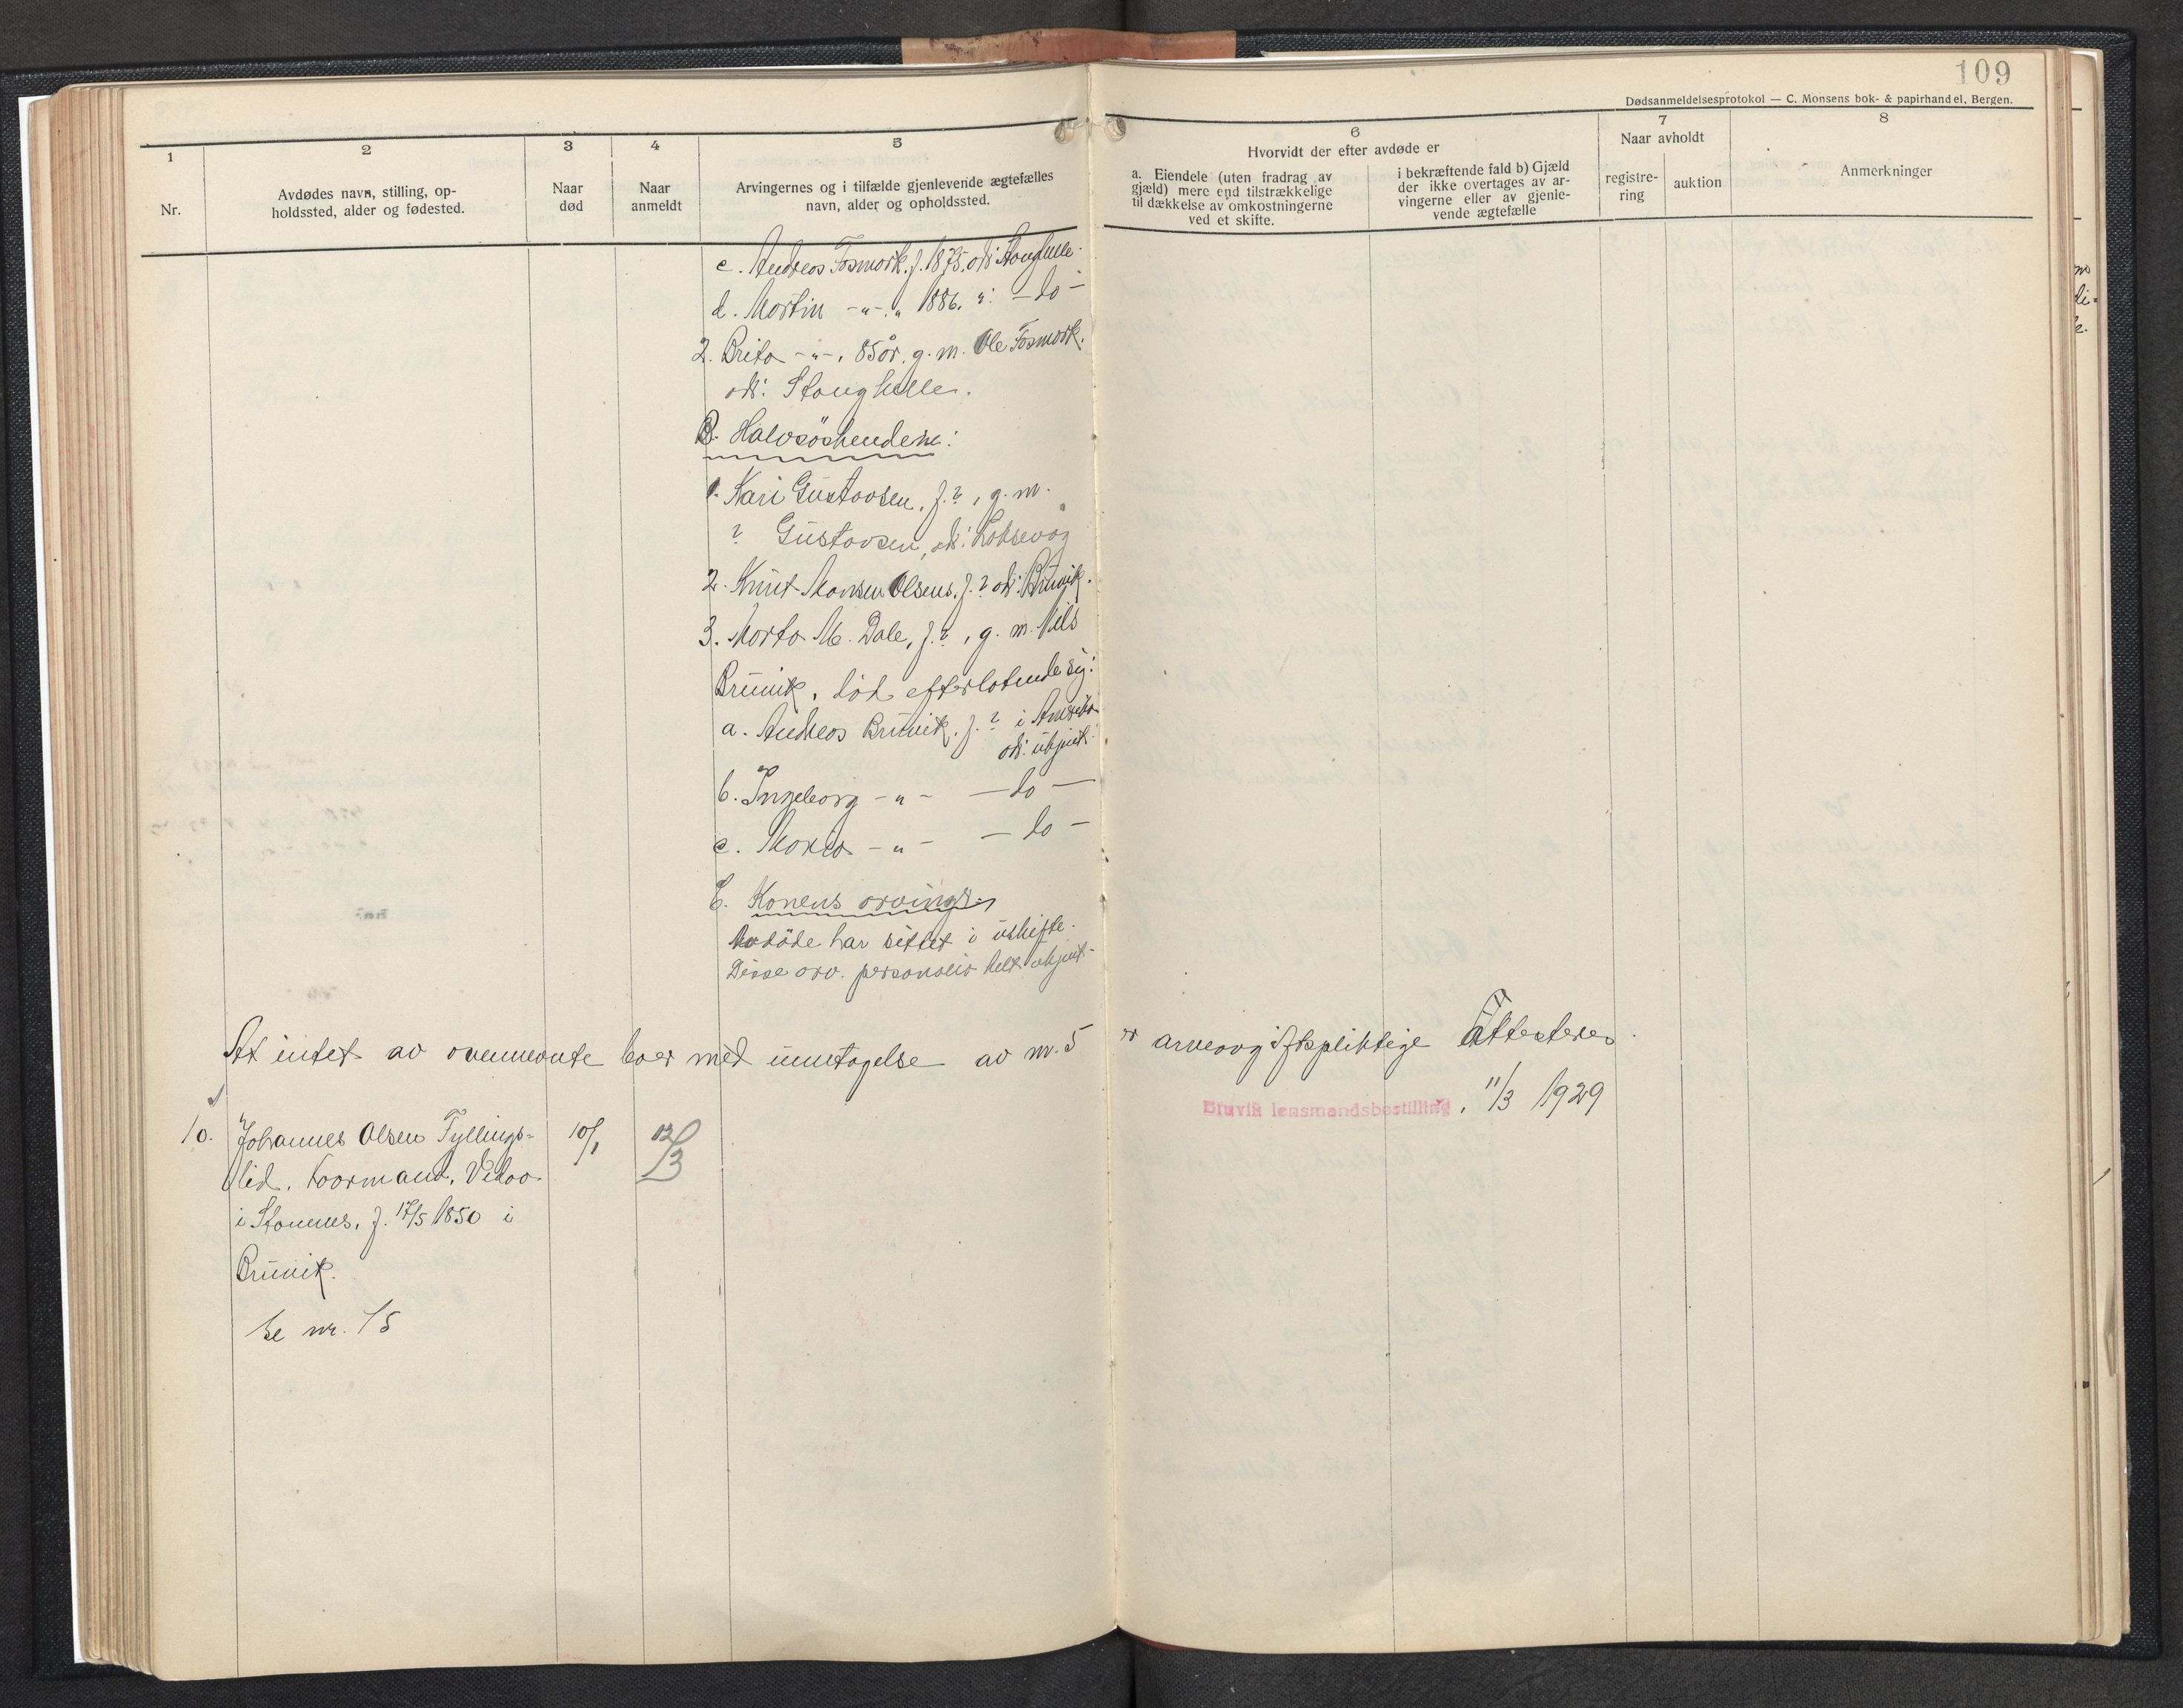 109
Dødsanmeldelsesprotokol — C. Monsens bok- & papirhandel, Bergen.
1
Nr.
2
Avdødes navn, stilling, op-
holdssted, alder og fødested.
3
Naar
død
4
Naar
anmeldt
5
Arvingernes og i tilfælde gjenlevende ægtefælles
navn, alder og opholdssted.
6
Hvorvidt der efter avdøde er
a. Eiendele (uten fradrag av
gjæld) mere end tilstrækkelige
til dækkelse av omkostningerne
ved et skifte.
i bekræftende fald b) Gjæld
der ikke overtages av ar-
vingerne eller av gjenle-
vende ægtefælle
7
Naar avholdt
registre-
ring
auktion
8
Anmerkninger
c. Andreas Fosmark, f. 1875, ods: Stanghelle.
d. Martin -"-. " 1886. ": - do -
2. Brita -"-, 85 år. g. m. Ole Fosmark.
ods: Stanghelle.
B. Halvsöskendene:
1. Kari Gustavsen, f. ?, g. m.
? Gustavsen, ods: Laksevåg
2. Knut Monsen Olsens, f. ? ods: Bruvik.
3. Marta M. Dale, f. ?, g. m. Nils
Bruvik, död efterlatende sig:
a. Andreas Bruvik, f. ? i Amerika
ods: ukjent.
b. Ingeborg -"- - do -
c. Maria -"- - do -
C. Konens arvinger
Avdöde har sittet i uskifte.
Disse arv. personalia helt ukjent.
At intet av ovennevnte boer med unntagelse av nr. 5 er arveavgiftspliktige attesteres.
Bruvik lensmandsbestilling, 11/3 1929
10. Johannes Olsen Tyllings- 10/1 12/3
lid, kaarmand, Vedaa
i Stamnes, f. 17/5 1850 i
Bruvik.
Se nr. 15